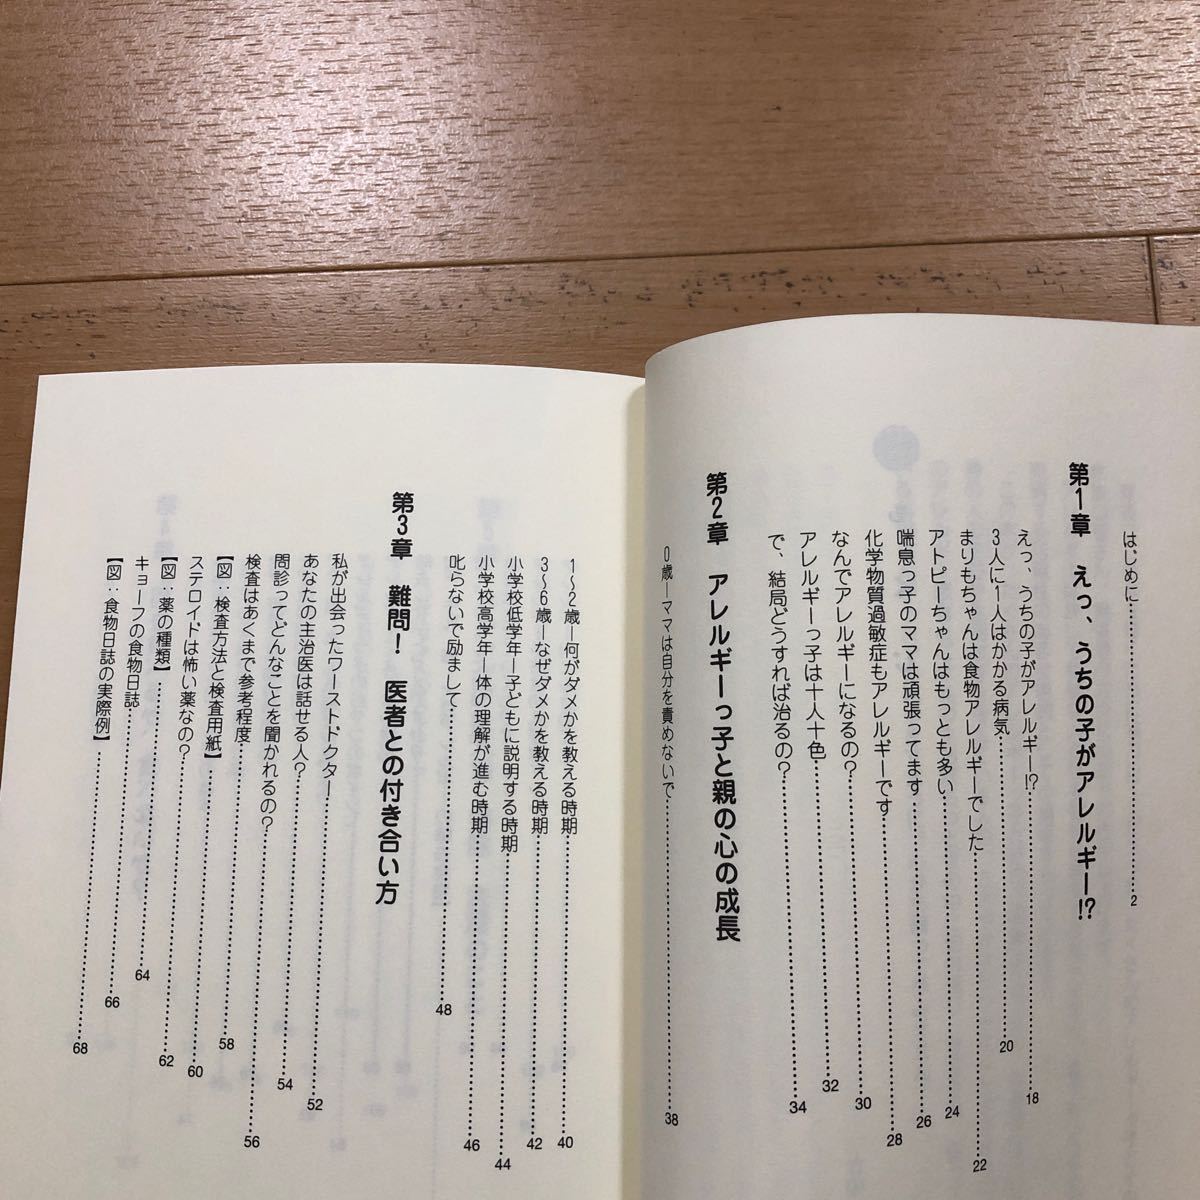 はじめに……2
第1章　えっ、うちの子がアレルギー!?
えっ、うちの子がアレルギー!?……18
3人に1人はかかる病気……20
まりもちゃんは食物アレルギーでした……22
アトピーちゃんはもっとも多い……24
喘息っ子のママは頑張ってます……26
化学物質過敏症もアレルギーです……28
なんでアレルギーになるの？……30
アレルギーっ子は十人十色……32
で、結局どうすれば治るの？……34
第2章　アレルギーっ子と親の心の成長
0歳―ママは自分を責めないで……38
1～2歳―何がダメかを教える時期……40
3～6歳―なぜダメかを教える時期……42
小学校低学年―子どもに説明する時期……44
小学校高学年―体の理解が進む時期……46
叱らないで励まして……48
第3章　難問！　医者との付き合い方
私が出会ったワーストドクター……52
あなたの主治医は話せる人？……54
問診ってどんなことを聞かれるの？……56
検査はあくまで参考程度……58
【図：検査方法と検査用紙】……60
ステロイドは怖い薬なの？……62
【図：薬の種類】……64
キョーフの食物日誌……66
【図：食物日誌の実際例】……68